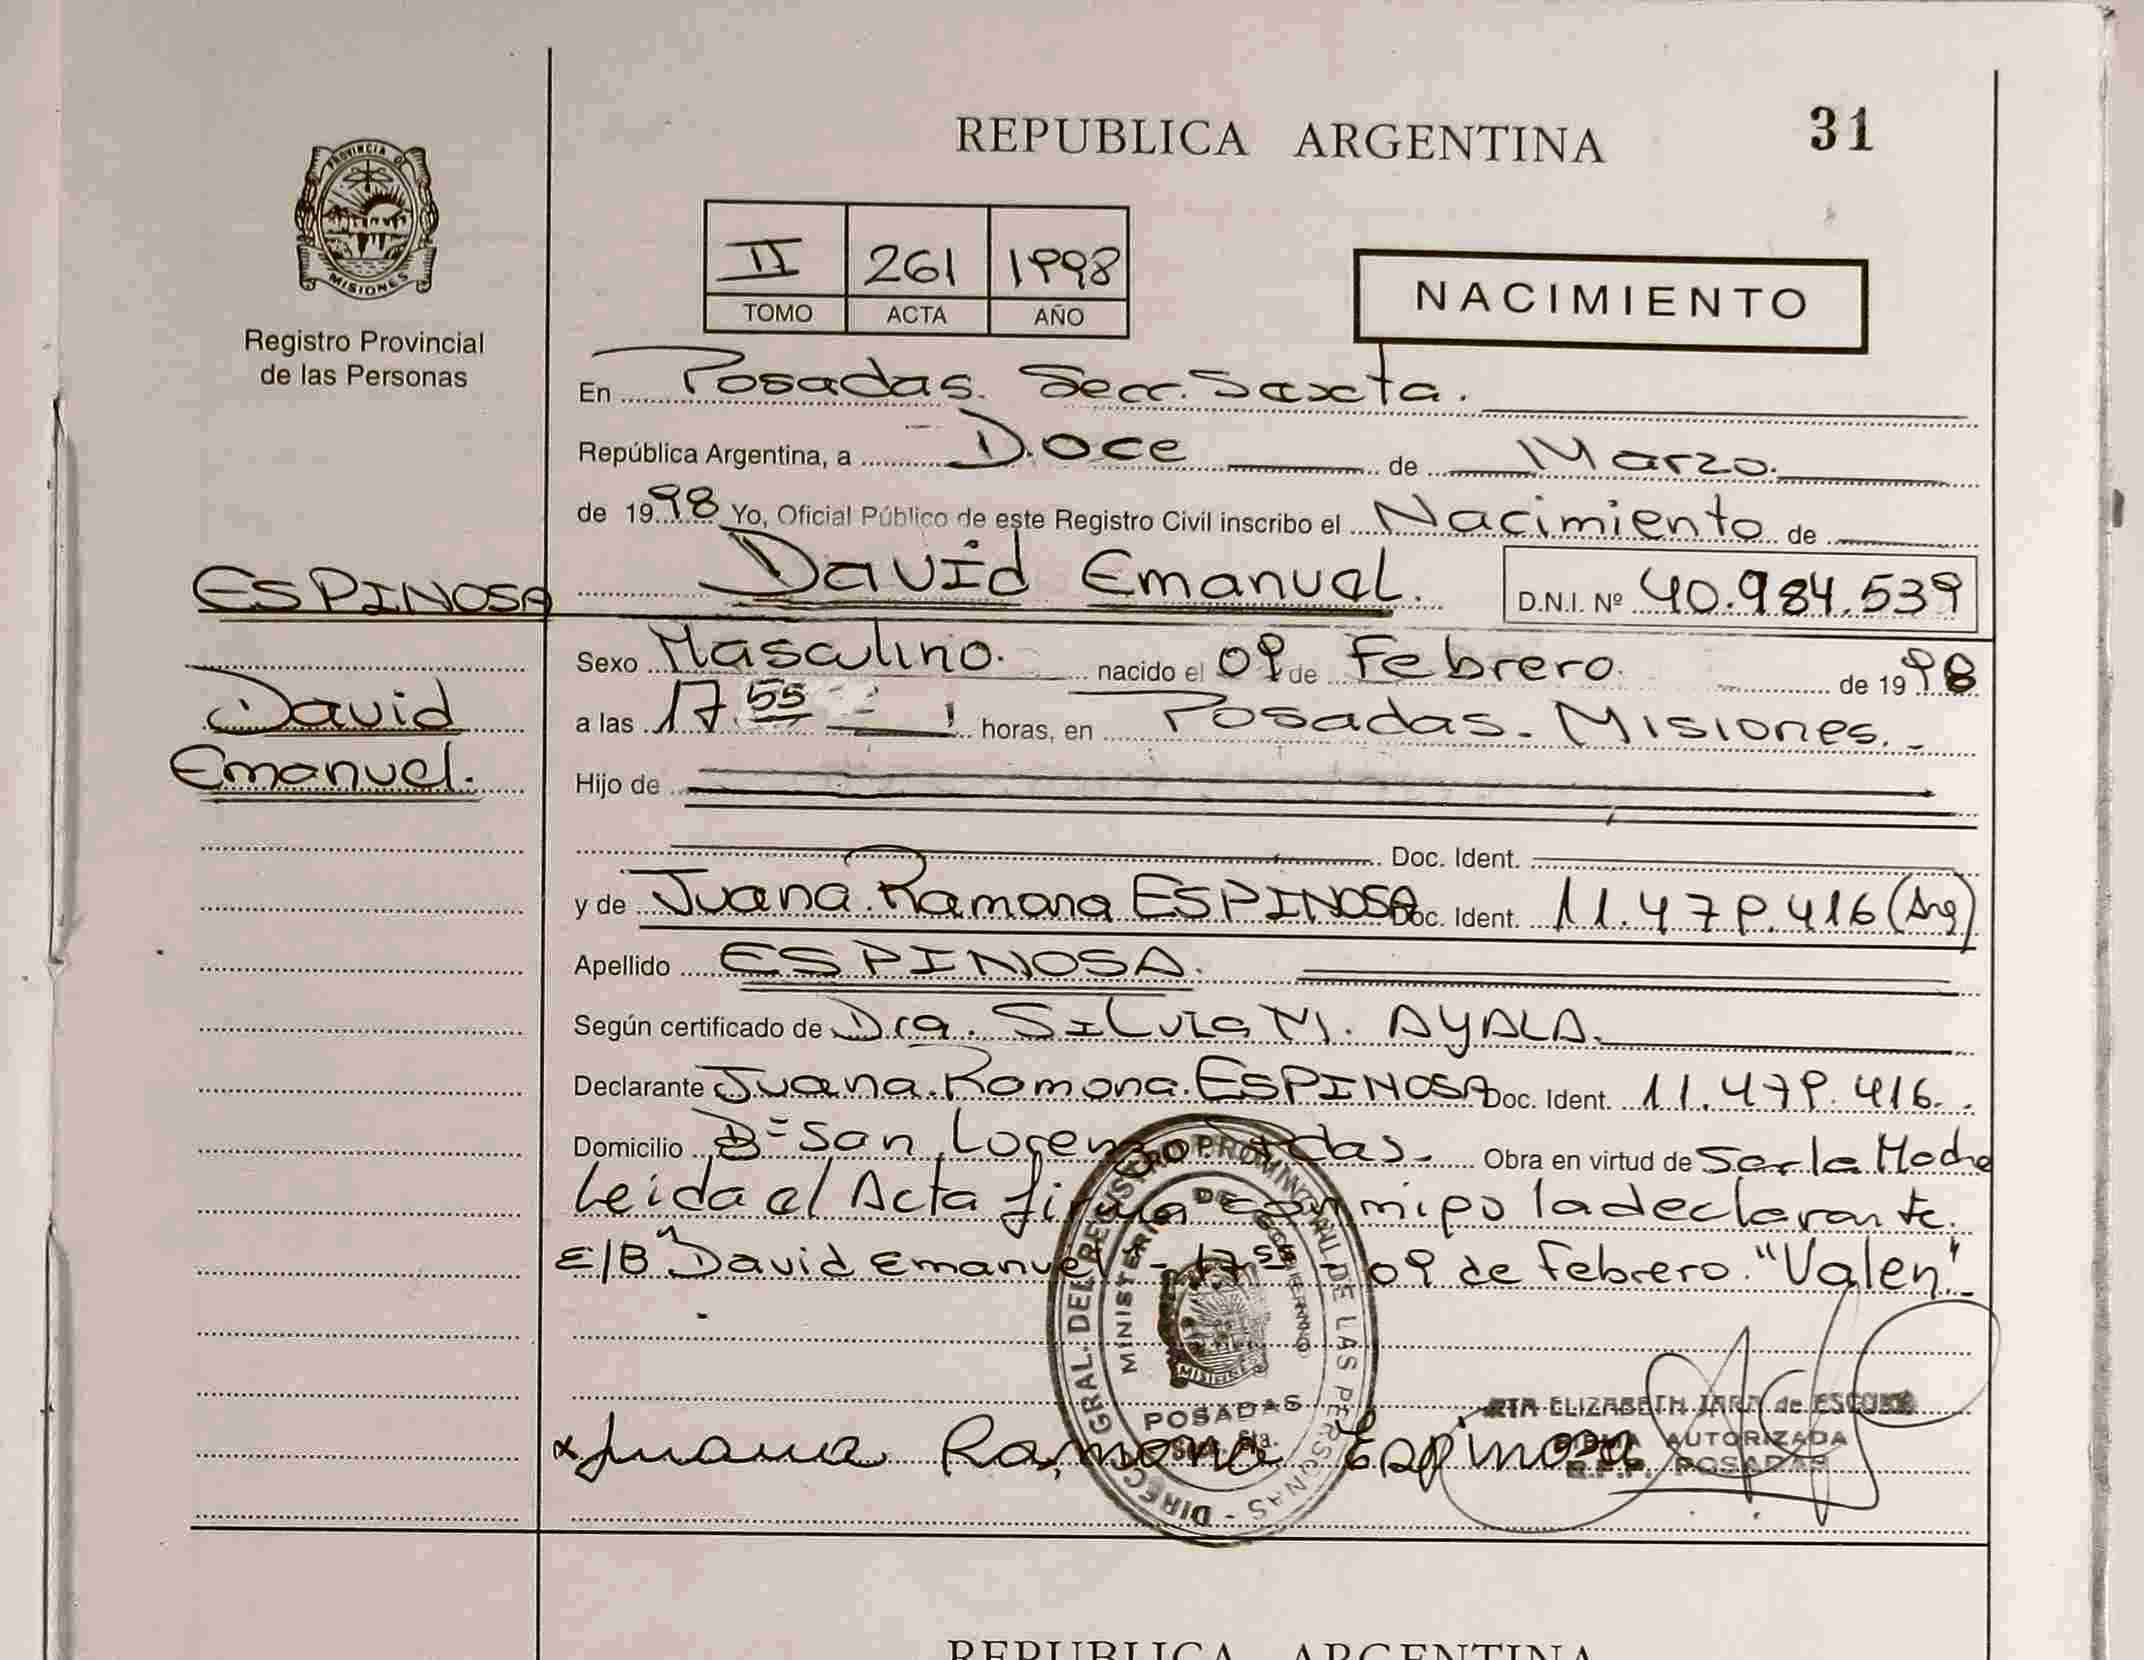 REPUBLICA ARGENTINA
31
PROVINCIA DE
MISIONES
Registro Provincial
de las Personas
II 261 1998
TOMO ACTA AÑO
NACIMIENTO
En Posadas. Secc. Sexta.
República Argentina, a Doce de Marzo.
de 1998 Yo, Oficial Público de este Registro Civil inscribo el Nacimiento de
David Emanuel. D.N.I. Nº 40.984.539
ESPINOSA
David
Emanuel.
Sexo Masculino. nacido el 09 de Febrero. de 1998
a las 17.55 horas, en Posadas. Misiones.
Hijo de
Doc. Ident.
y de Juana Ramona ESPINOSA Doc. Ident. 11.479.416 (Arg)
Apellido ESPINOSA.
Según certificado de Dra. Silvia M. AYALA.
Declarante Juana Ramona ESPINOSA Doc. Ident. 11.479.416.
Domicilio Bº San Lorenzo. Pdas. Obra en virtud de Ser la Madre
Leida el Acta firma conmigo la declarante.
E/B "David Emanuel - 17.55 - 09 de Febrero. "Valen"
DIREC. GRAL. DEL REGISTRO PROVINCIAL DE LAS PERSONAS
MINISTERIO DE GOBIERNO
MISIONES
POSADAS
Secc. 6ta.
ELIZABETH JARA de
FIRMA AUTORIZADA
R.P.P. POSADAS
x Juana Ramona Espinosa
REPUBLICA ARGENTINA